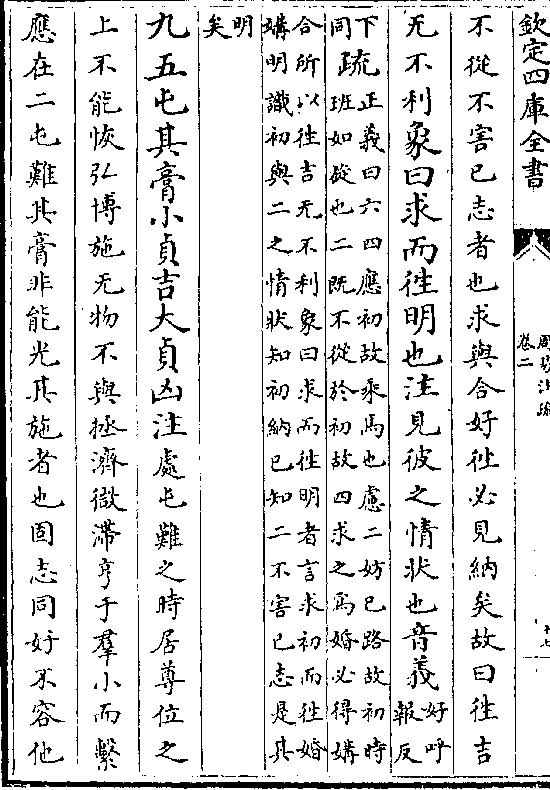 欽定四庫全書
周易注疏
卷二
不從不害已志者也求與合好徃必見納矣故曰徃吉
无不利象曰求而徃明也注見彼之情狀也音義好呼
報反
下疏正義曰六四應初故乘馬也慮二妨已路故初時
同班如旋也二既不從於初故四求之為婚必得媾
合所以徃吉无不利象曰求而徃明者言求初而徃婚
媾明識初與二之情狀知初納已知二不害已志是其
明
矣
九五屯其膏小貞吉大貞凶注處屯難之時居尊位之
上不能恢弘博施无物不與拯濟微滯亨于羣小而繫
應在二屯難其膏非能光其施者也固志同好不容他